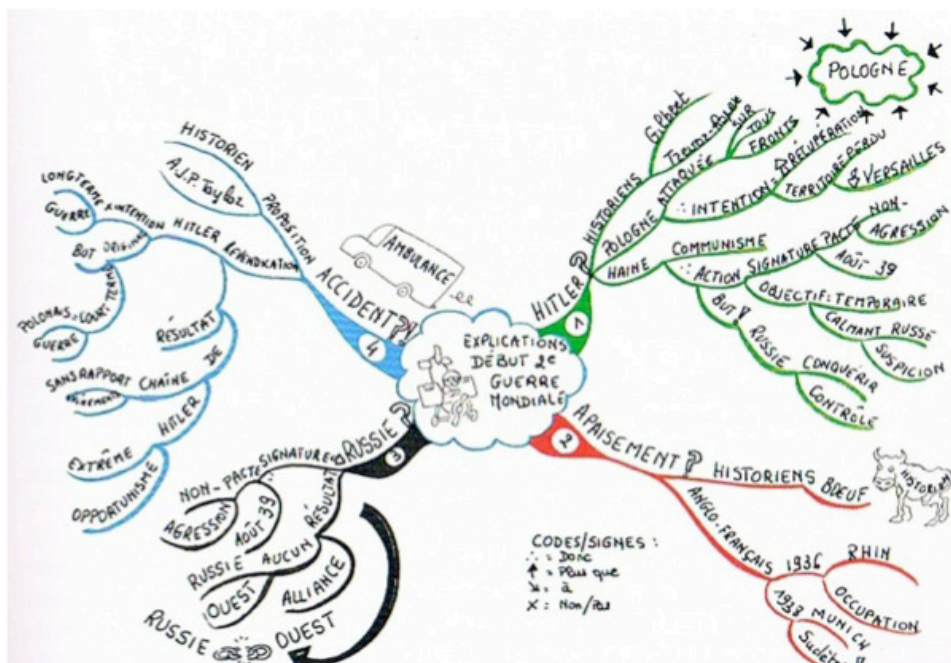 EXPLICATIONS
DÉBUT 2e
GUERRE
MONDIALE
1
HITLER ?
HISTORIENS
Gilbert
POLOGNE ATTAQUÉE
SUR
TOUS
FRONTS
POLOGNE
∴ INTENTION =
RÉCUPÉRATION
TERRITOIRE PERDU
VERSAILLES
HAINE
COMMUNISME
∴ ACTION
SIGNATURE PACTE
NON-
AGRESSION
AOÛT 39
OBJECTIF: TEMPORAIRE
CALMANT RUSSE
SUSPICION
BUT
RUSSIE
CONQUÉRIR
CONTRÔLE
2
APAISEMENT ?
HISTORIENS
BŒUF
HISTORIENS
ANGLO-FRANÇAIS
1936
RHIN
OCCUPATION
1938 MUNICH
3
RUSSIE ?
SIGNATURE
NON-PACTE
AGRESSION
AOÛT 39
RÉSULTAT
RUSSIE AUCUN
OUEST
ALLIANCE
RUSSIE
OUEST
4
ACCIDENT ?!
AMBULANCE
PROPOSITION
HISTORIEN
A.J.P. Taylor
HITLER
INTENTION
LONG TERME
GUERRE
BUT ORIGINE
POLONAIS = COURT TERME
GUERRE
RÉSULTAT
CHAÎNE DE
SANS RAPPORT
HITLER
EXTRÊME
OPPORTUNISME
CODES/SIGNES :
∴ = Donc
↑ = Plus que
↘ = à
X = Non/Pas